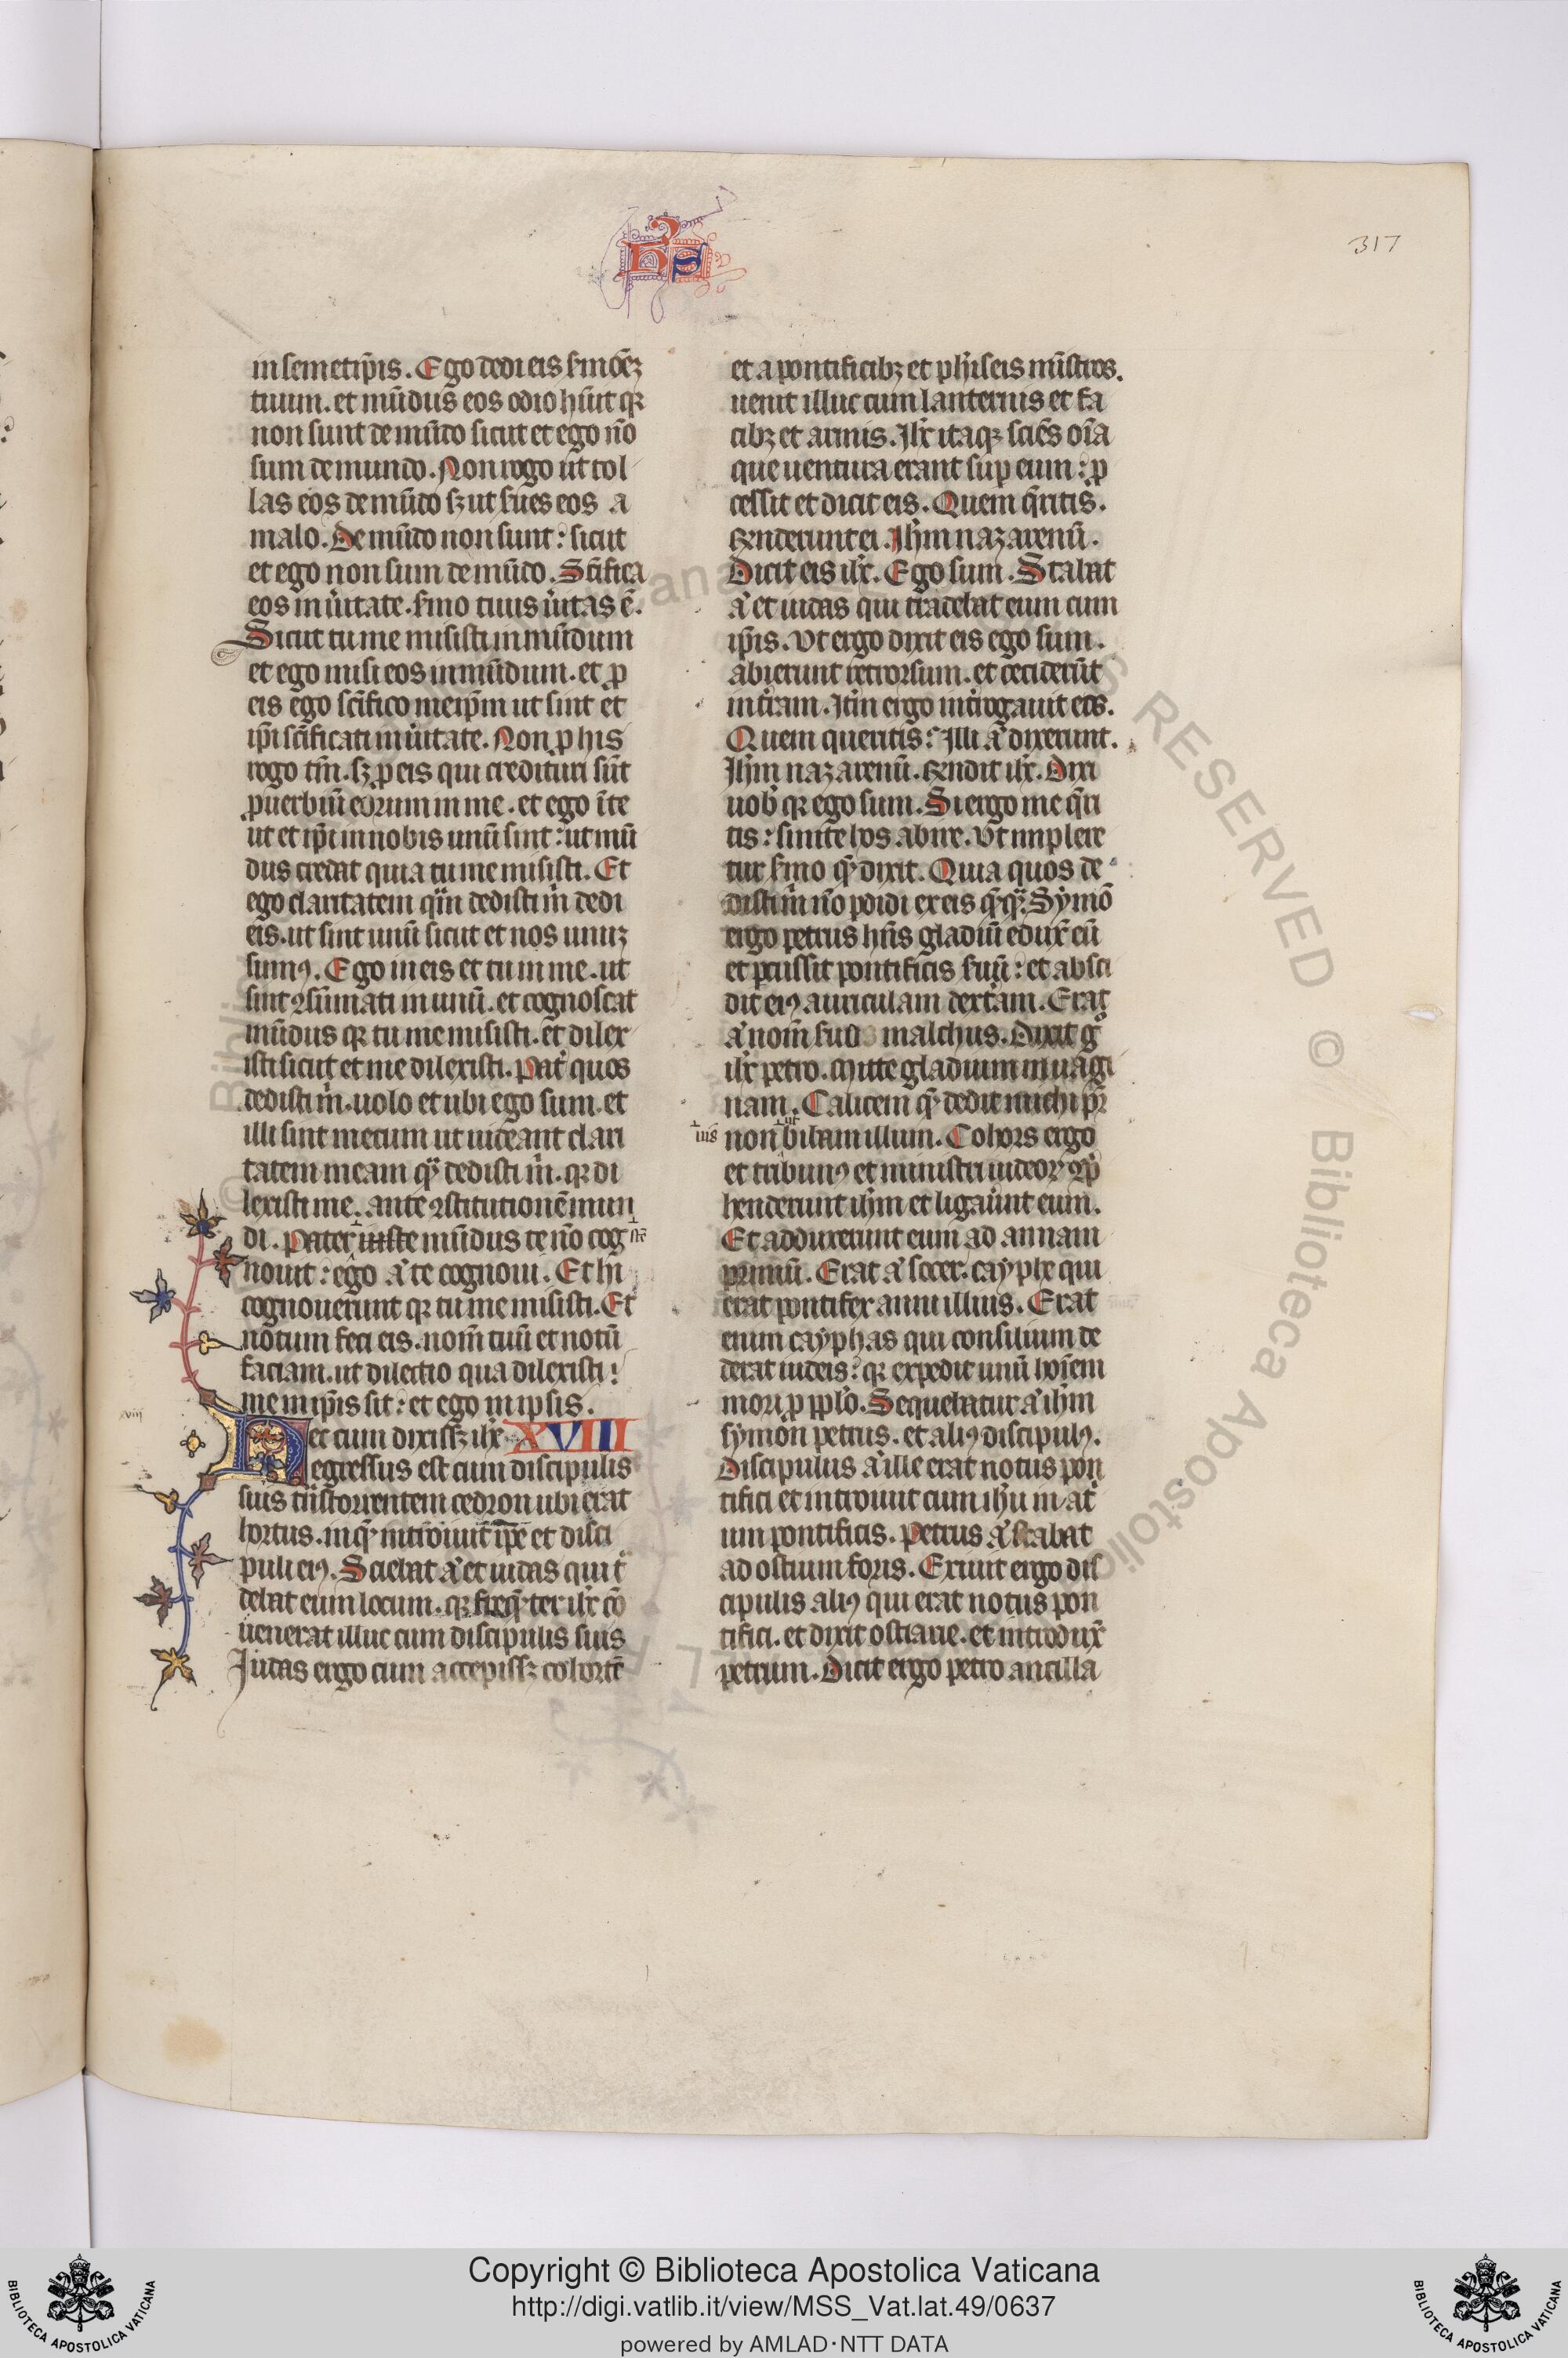 317
in semetip̃is. Ego dedi eis s̃moñeꝫ
tuum. et mũdus eos odio hũit qꝛ
non sunt de mũdo sicut et ego nõ
sum de mundo. Non rogo ut tol
las eos de mũdo sꝫ ut s̃ues eos a
malo. De mũdo non sunt: sicut
et ego non sum de mũdo. Sc̃ifica
eos in ũitate. s̃mo tuus ũitas ẽ.
Sicut tu me misisti in mũdum
et ego misi eos in mũdum. et ꝓ
eis ego sc̃ifico meip̃m ut sint et
ip̃i sc̃ificati in ũitate. Non ꝓ his
rogo tm̃. sꝫ ꝓ eis qui credituri sũt
ꝑ uerbiũ eorum in me. et ego ĩ te
ut et ip̃i in nobis unũ sint: ut mũ
dus credat quia tu me misisti. Et
ego claritatem q̃m dedisti m̃ dedi
eis. ut sint unũ sicut et nos unuꝫ
sumꝰ. Ego in eis et tu in me. ut
sint ꝯsũmati in unũ. et cognoscat
mũdus qꝛ tu me misisti. et dilex
isti sicut et me dilexisti. Pat̃ quos
dedisti m̃. uolo et ubi ego sum. et
illi sint mecum ut uideant clari
tatem meam q̃ dedisti m̃. qꝛ di
lexisti me. ante ꝯstitutionẽ mun
di. Pater iuste mũdus te nõ cog
nouit: ego ã te cognoui. Et hi
cognouerunt qꝛ tu me misisti. Et
notum feci eis. nom̃ tuũ et notũ
faciam. ut dilectio qua dilexisti
me in ip̃is sit: et ego in ipsis.
xviij
Hec cum dixissꝫ ih̃c XVIII
egressus est cum discipulis
suis tñs torrentem cedron ubi erat
hortus. in q̃ introiuit ip̃e et disci
puli eiꝰ. Sciebat ã et iudas qui t̃
debat eum locum. qꝛ freq̃ter ih̃c cõ
uenerat illuc cum discipulis suis
Judas ergo cum accepissꝫ cohortẽ
et a pontificibꝫ et ph̃iseis mĩstros.
uenit illuc cum lanternis et fa
cibꝫ et armis. Ih̃c itaqꝫ sciẽs oĩa
que uentura erant suꝑ eum: ꝓ
cessit et dicit eis. Quem q̃ritis.
R̃nderunt ei. Ih̃m nazarenũ.
Dicit eis ih̃c. Ego sum. Stabat
ã et iudas qui tradebat eum cum
ip̃is. Ut ergo dixit eis ego sum.
abierunt retrorsum. et ceciderũt
in t̃ram. It̃m ergo int̃rogauit eos.
Quem queritis: Illi ã dixerunt.
Ih̃m nazarenũ. R̃ndit ih̃c. Dixi
uob̃ qꝛ ego sum. Si ergo me q̃ri
tis: sinite hos abire. Ut implere
tur s̃mo q̃ dixit. Quia quos de
disti m̃ nõ ꝑdidi ex eis q̃q̃. Symõ
ergo petrus hñs gladiũ edux̃ eũ
et ꝑcussit pontificis s̃uũ: et absci
dit eiꝰ auriculam dext̃am. Erat
ã nom̃ s̃uo malchus. Dixit g̊
ih̃c petro. Mitte gladium in uagi
nam. Calicem q̃ dedit michi pr̃
non bibam illum. Cohors ergo
et tribunꝰ et ministri iudeoꝝ ꝯp̃
henderunt ih̃m et ligaũnt eum.
Et adduxerunt eum ad annam
primũ. Erat ã socer. cayphe qui
erat pontifex anni illius. Erat
enim cayphas qui consilium de
derat iudeis: qꝛ expedit unũ hoĩem
mori ꝓ pp̃lo. Sequebatur ã ih̃m
symon petrus. et aliꝰ discipulꝰ.
Discipulus ã ille erat notus pon
tifici et introiuit cum ih̃u in at̃
um pontificis. Petrus ã stabat
ad ostium foris. Exiuit ergo dis
cipulis aliꝰ qui erat notus pon
tifici. et dixit ostiarie. et introdux̃
petrum. Dicit ergo petro ancilla
Copyright © Biblioteca Apostolica Vaticana
http://digi.vatlib.it/view/MSS_Vat.lat.49/0637
powered by AMLAD·NTT DATA
BIBLIOTECA APOSTOLICA VATICANA
BIBLIOTECA APOSTOLICA VATICANA